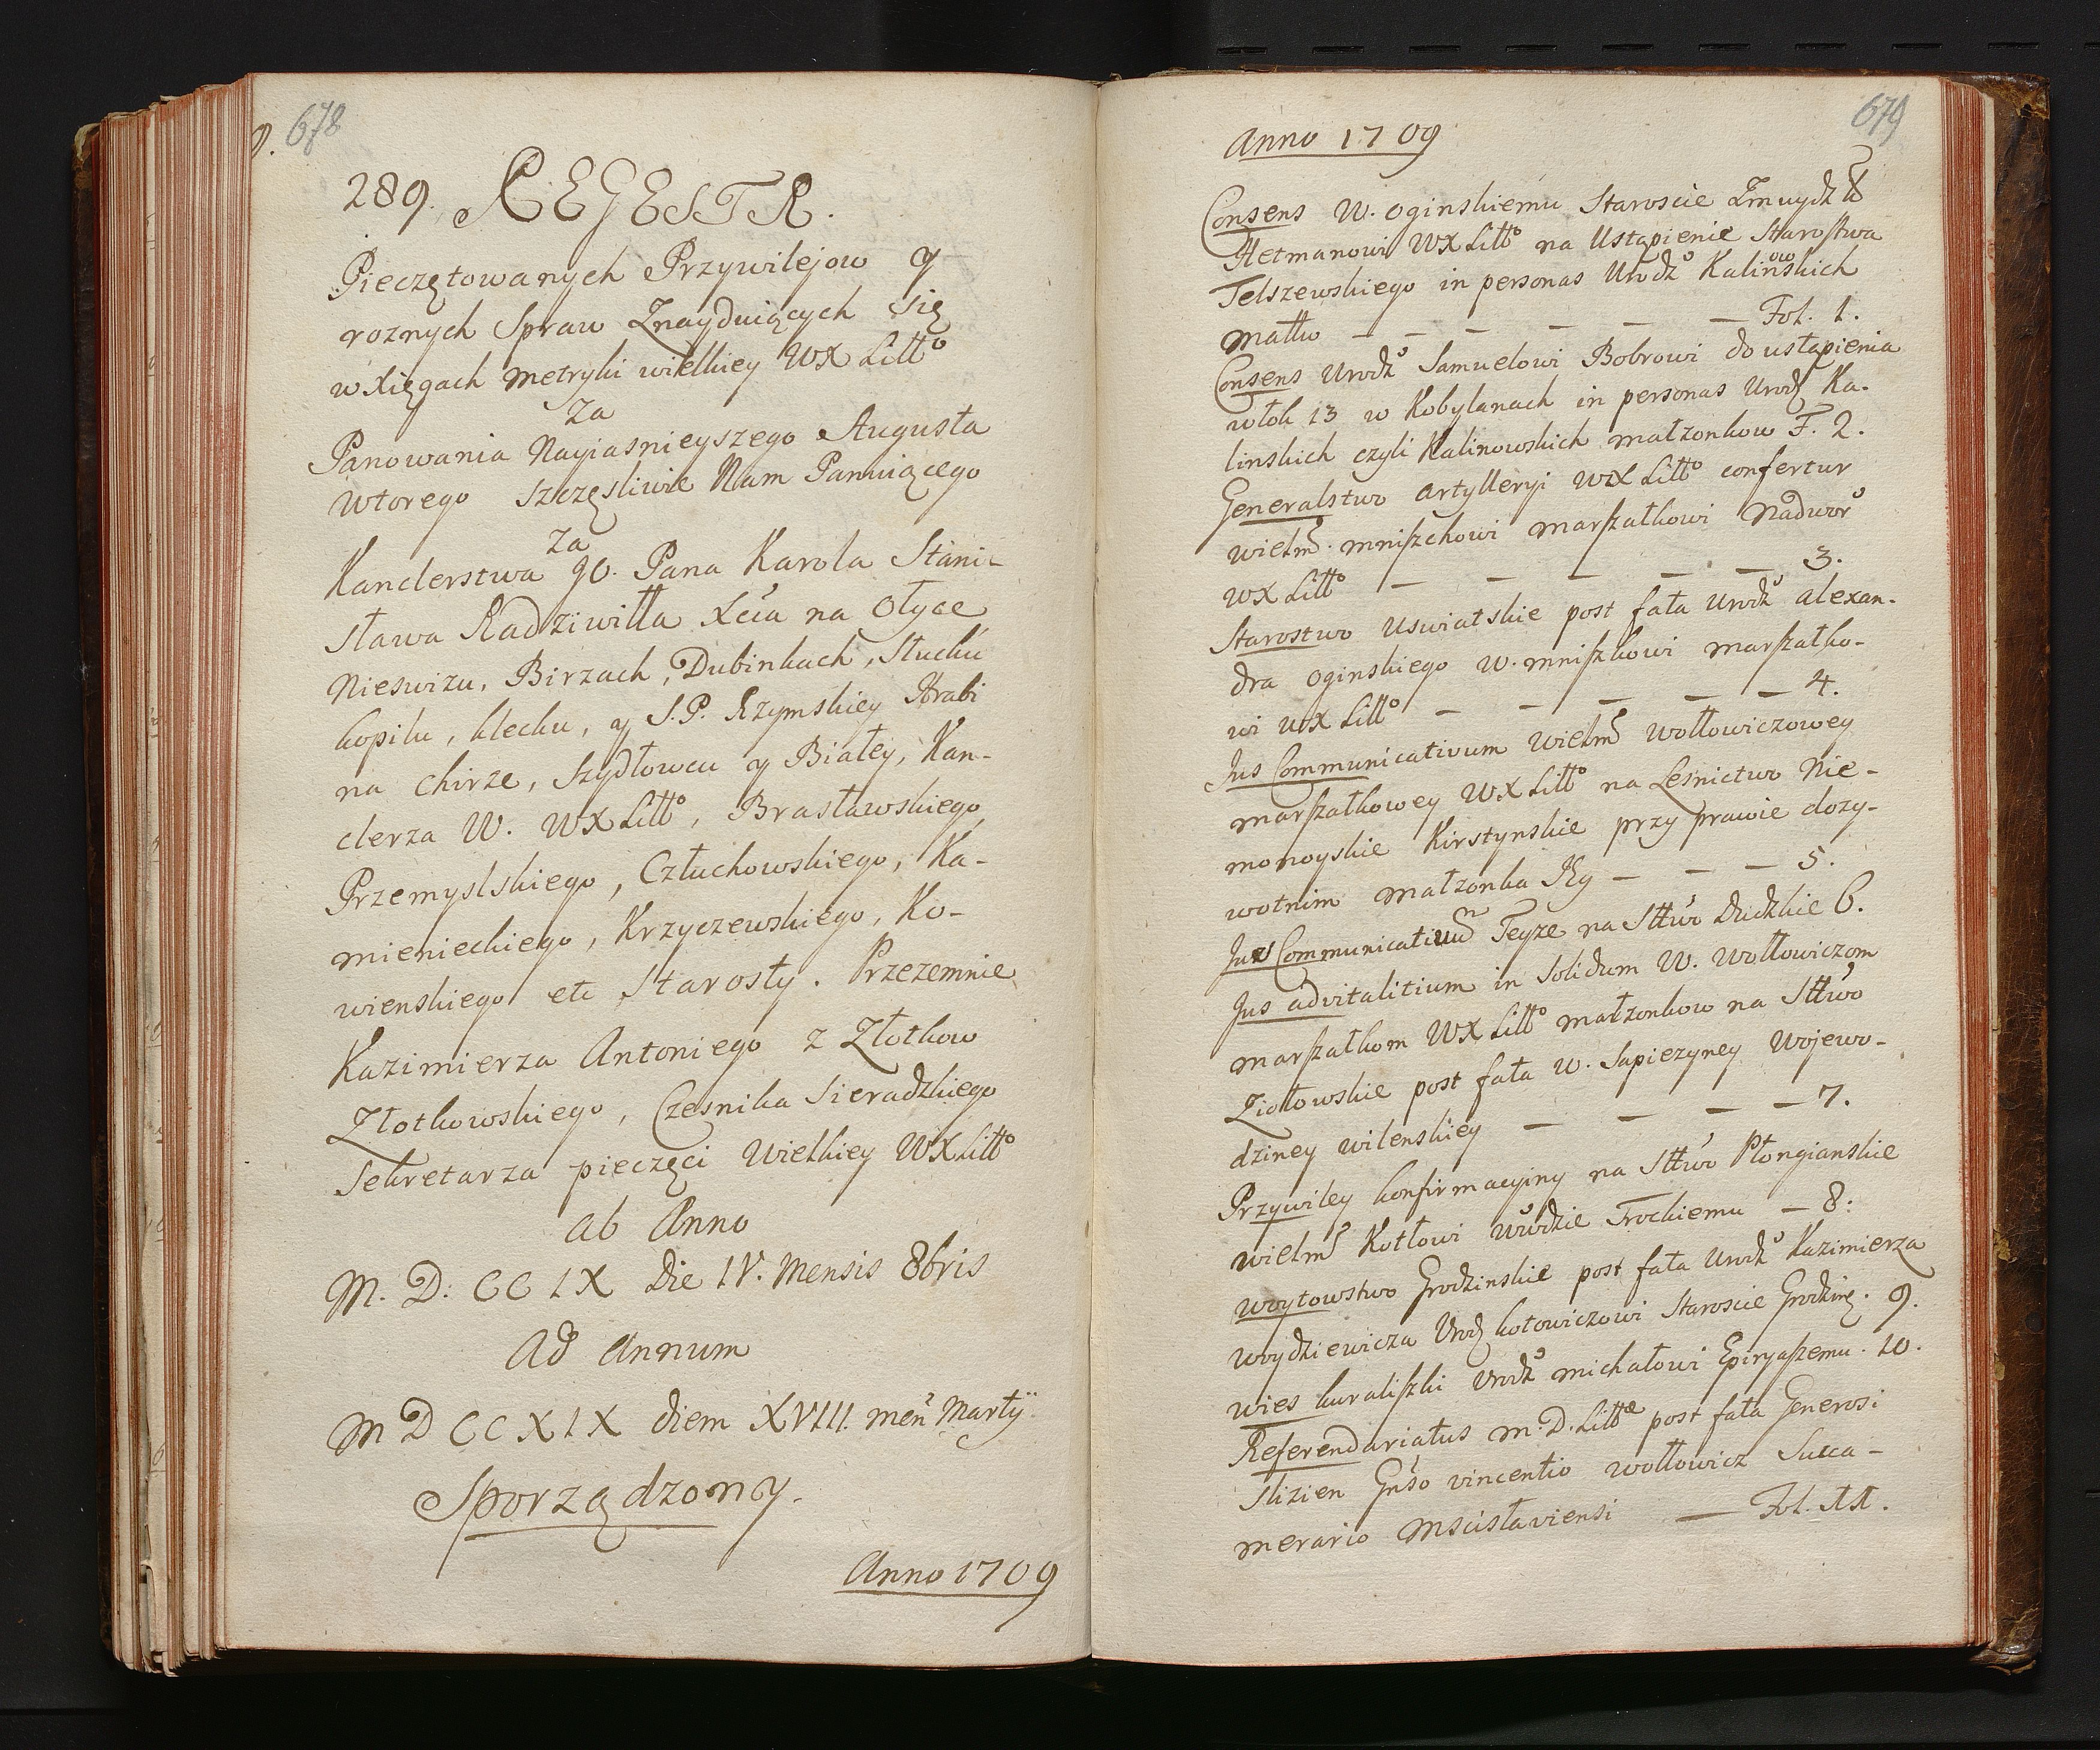 678
289. REGESTR.
Pieczętowanych Przywilejow y
roznych Spraw Znayduiących się
w Xięgach Metryki wielkiey WX Litto
za
Panowania Nayiasnieyszego Augusta
Wtorego szczęsliwie Nam Panuiącego
za
Kanclerstwa JO. Pana Karola Stani-
sława Radziwiłła Xcia na Ołyce
Nieswizu, Birzach, Dubinkach, Słucku
kopilu, klecku, y S.P. Rzymskiey Hrabi
na Chirze, Szydłowcu y Białey, Kan-
clerza W. WX Litto, Brasławskiego
Przemyslskiego, Człuchowskiego, Ka-
mienieckiego, Krzyczewskiego, Ko-
wienskiego etc Starosty. Przezemnie
Kazimierza Antoniego z Złotkow
Złotkowskiego, Czesnika Sieradzkiego
Sekretarza pieczęci Wielkiey WX Litto
ab Anno
M. D: CC IX Die IV. Mensis 8bris
Ad Annum
M D CC X I X diem XVIII. men Martÿ
Sporządzony.
Anno 1709
679
Anno 1709
Consens W. Oginskiemu Staroscie Zmuydz &
Hetmanowi WX Litto na Ustąpienie Starostwa
Telszewskiego in personas Urodz Kalinowskich
Małło — — — — — — Fol. 1.
Consens Urodz Samuelowi Bobrowi do ustąpienia
włok 13 w Kobylanach in personas Urodz Ka-
linskich czyli Kalinowskich małzonkow F. 2.
Generalstwo Artylleryi WX Litto confertur
wielm. Mniszchowi Marszałkowi Nadwor
WX Litto — — — — — 3.
Starostwo Uswiatskie post fata Urodz Alexan-
dra Oginskiego W. Mniszkowi Marszałko-
wi WX Litto — — — — — 4.
Jus Communicativum wielm Wołłowiczowey
Marszałkowey WX Litto na Lesnictwo Nie-
monoyskie Kirstynskie przy prawie dozy-
wotnim Małzonka JEy — — — 5.
Jus Communicativum Teyze na Sttwo Dudzkie 6.
Jus advitalitium in Solidum W. Wołłowiczom
Marszałkom WX Litto małzonkow na Sttwo
Ziołowskie post fata W. Sapiezyney Wojewo-
dziney wilenskiey — — — — 7.
Przywiley konfirmacyiny na Sttwo Płongianskie
wielm Kotłowi Wwdzie Trockiemu — 8:
Woytowstwo Grodzinskie post fata Urodz Kazimierza
Woydziewicza Urodz kotowiczowi Staroscie Grodzins. 9.
wies kuraliszki Urodz Michałowi Epiryaszemu. 10.
Referendariatus M. D. Litte post fata Generosi
Slizien Gnso vincentio wołłowicz Succa-
merario Mscislaviensi — Fol. 11.